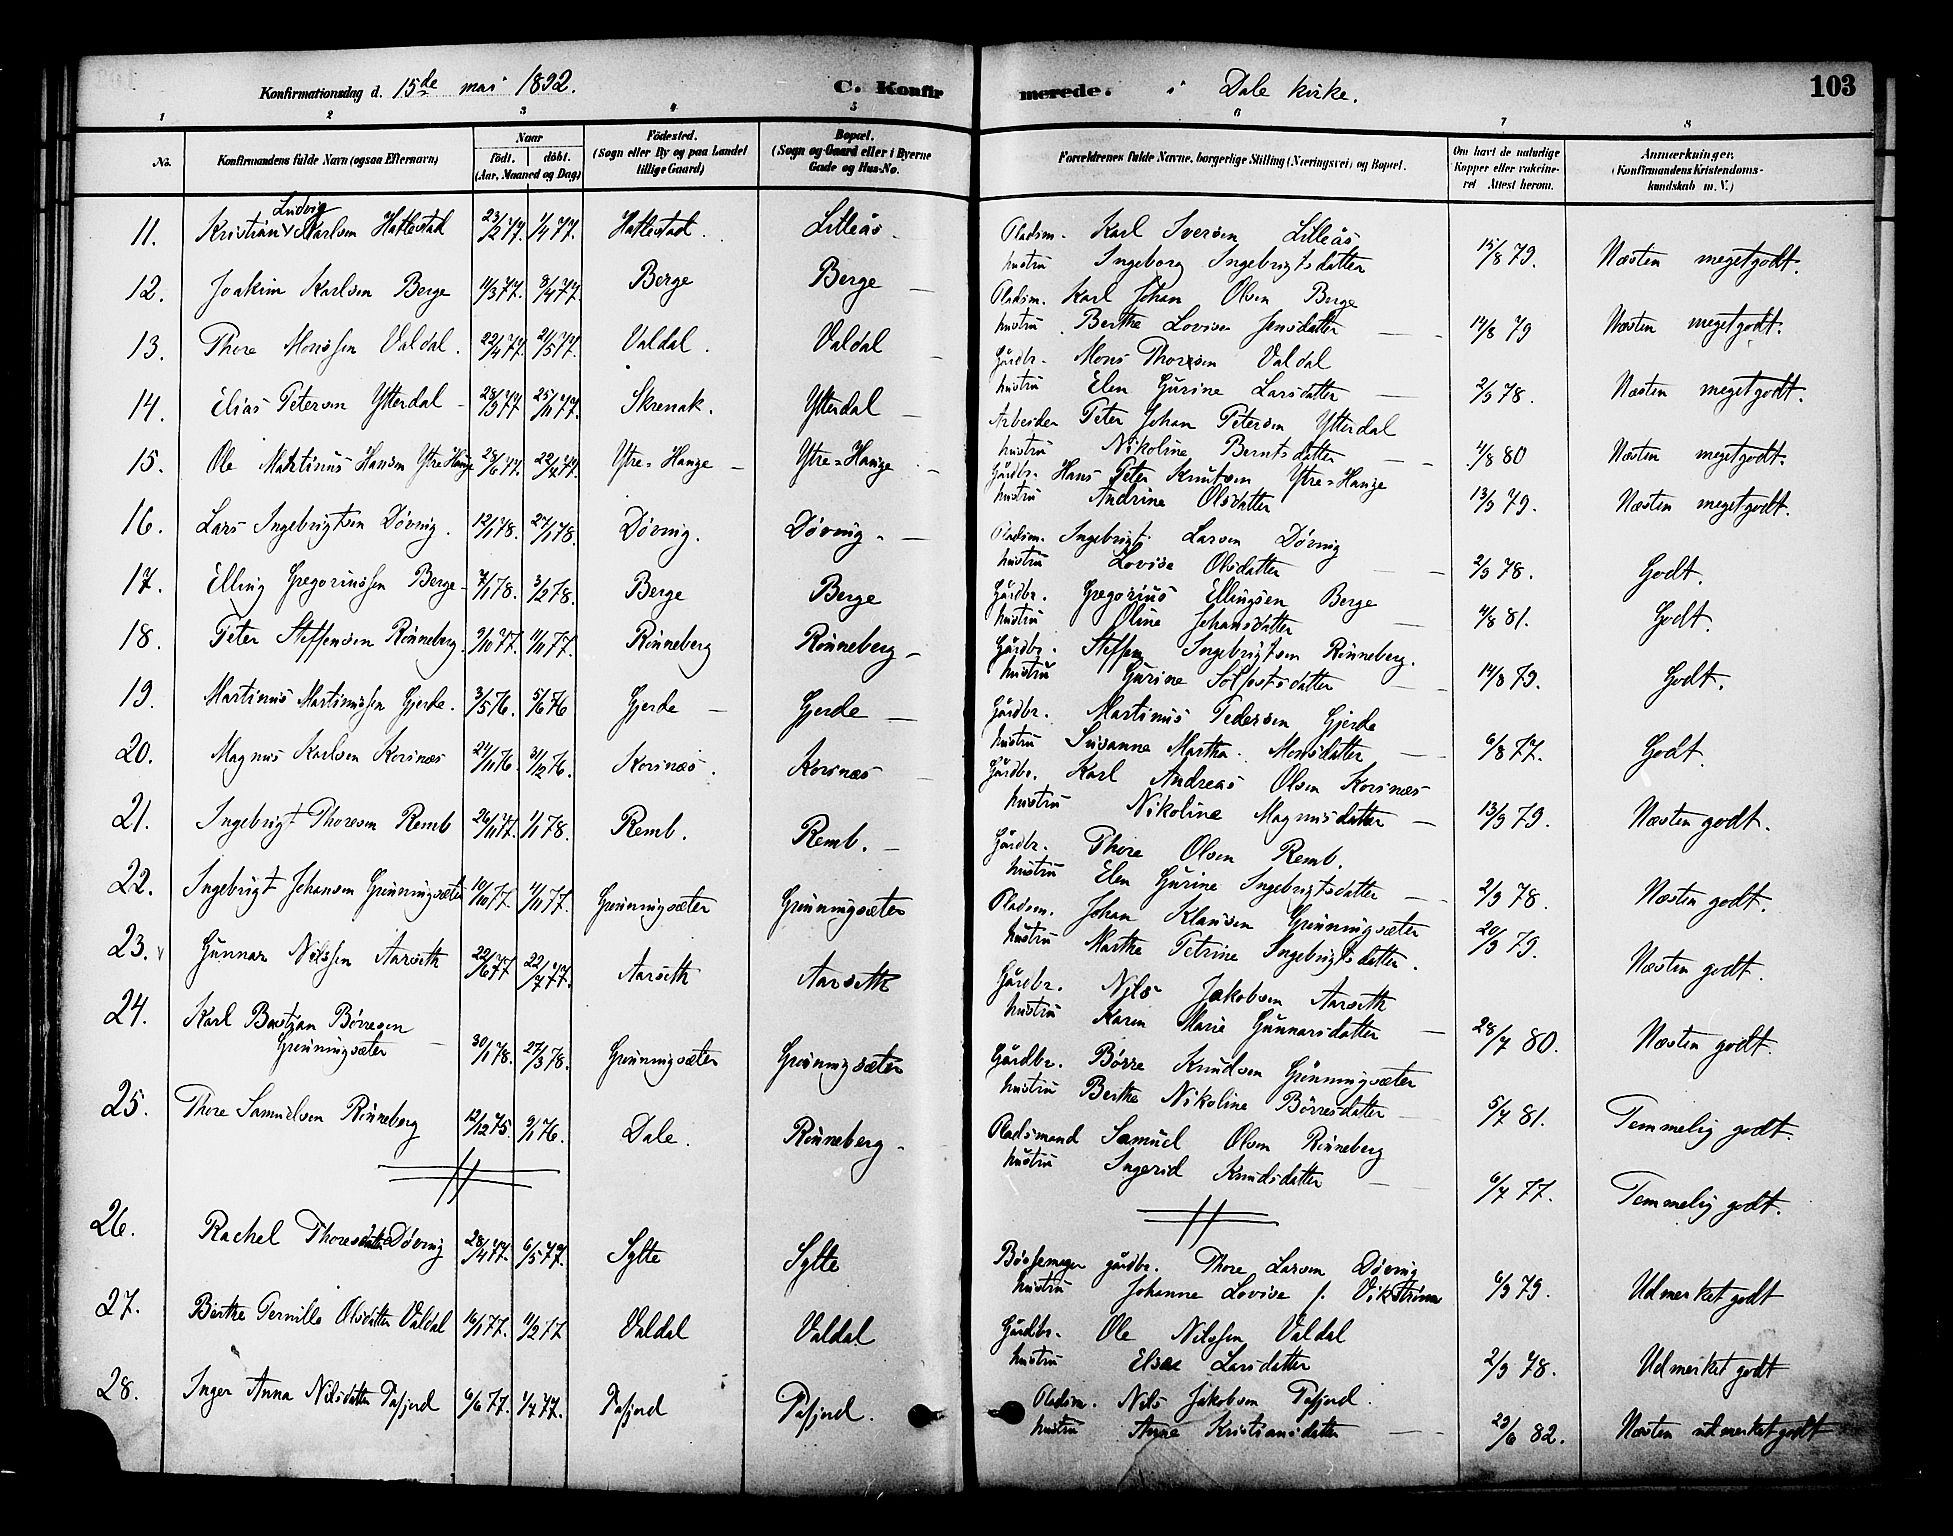 Konfirmationsdag d. 15de mai 1892. C. Konfir merede. i Dale kirke. 103
1 2 3 4 5 6 7 8
No. Konfirmandens fulde Navn (ogsaa Efternavn) Naar födt. döbt. (Aar, Maaned og Dag) Födested. (Sogn eller By og paa Landet tillige Gaard) Bopæl. (Sogn og Gaard eller i Byerne Gade og Hus-No. Forældrenes fulde Navne, borgerlige Stilling (Næringsvei) og Bopæl. Om havt de naturlige Kopper eller vakcineret Attest herom. Anmærkninger. (Konfirmandens Kristendomskundskab m. V.)
11. Kristian Ludvig Karlsen Hattestad 23/2 77. 1/4 77. Hattestad. Lilleås Pladsm. Karl Iversen Lilleås
hustru Ingeborg Ingebrigtsdatter 15/8 79. Næsten megetgodt.
12. Joakim Karlsen Berge 11/3 77. 2/4 77. Berge Berge Pladsm. Karl Johan Olsen Berge
hustru Berthe Lovise Jensdatter 14/8 79 Næsten megetgodt.
13. Thore Monssen Valdal. 22/4 77. 21/5 77. Valdal. Valdal Gårdbr. Mons Thoresen Valdal
hustru Elen Gurine Larsdatter 2/3 78. Næsten megetgodt.
14. Elias Petersen Ytterdal 23/9 77. 25/11 77. Skrenak. Ytterdal Arbeider Peter Johan Petersen Ytterdal
hustru Nikoline Berntsdatter 4/8 80 Næsten megetgodt.
15. Ole Martinus Hansen Ytre Hauge 23/6 77. 22/7 77. Ytre-Hauge Ytre-Hauge Gårdbr. Hans Peter Knutsen Ytre-Hauge
hustru Andrine Olsdatter 13/9 79. Næsten megetgodt.
16. Lars Ingebrigtsen Døvnig. 12/1 78. 27/1 78. Døvnig. Døvnig. Pladsm. Ingebrigt Larsen Døvnig
hustru Lovise Olsdatter 2/3 78. Godt.
17. Elling Gregoriussen Berge 7/1 78. 3/2 78. Berge Berge Gårdbr. Gregorius Ellingsen Berge
hustru Oline Johansdatter 4/8 81. Godt.
18. Peter Steffensen Rønneberg. 9/10 77. 11/11 77. Rønneberg Rønneberg Gårdbr. Steffen Ingebrigtsen Rønneberg.
hustru Gurine Solfestsdatter 14/8 79. Godt.
19. Martinus Martinussen Gjerde. 3/5 76. 5/6 76 Gjerde Gjerde Gårdbr. Martinus Pedersen Gjerde
hustru Susanne Martha Monsdatter 6/8 77. Godt.
20. Magnus Karlsen Korsnæs 24/11 76. 31/12 76. Korsnæs. Korsnæs Gårdbr. Karl Andreas Olsen Korsnæs
hustru Nikoline Magnusdatter 13/9 79. Næsten godt.
21. Ingebrigt Thoresen Remb 26/11 77. 1/1 78. Remb. Remb. Gårdbr. Thore Olsen Remb.
hustru Elen Gurine Ingebrigtsdatter 2/3 78. Næsten godt.
22. Ingebrigt Johansen Grønningsæter 10/10 77. 11/11 77. Grønningsæter Grønningsæter Pladsm. Johan Klausen Grønningsæter
hustru Marthe Petrine Ingebrigtsdatter. 20/9 79. Næsten godt.
23. Gunnar Nilssen Aarseth 22/6 77 22/7 77. Aarseth Aarseth Gårdbr. Nils Jakobsen Aarseth
hustru Karen Marie Gunnarsdatter 28/7 80. Næsten godt.
24. Karl Bastian Børresen
Grønningsæter 30/1 78. 27/3 78. Grønningsæter Grønningsæter Gårdbr. Børre Knudsen Grønningsæter
hustru Berthe Nikoline Børresdatter 5/7 81. Temmelig godt.
25. Thore Samuelsen Rønneberg 12/12 75. 9/1 76. Dale. Rønneberg Pladsmand Samuel Olsen Rønneberg
hustru Ingerid Knudsdatter 6/7 77. Temmelig godt.
26. Rachel Thoresdatter Døvnig 28/4 77. 6/5 77. Sylte Sylte gårdbr. Thore Larsen Døvnig
hustru Johanne Lovise f. Vikstrøm 6/9 79. Udmerket godt
27. Berthe Pernille Olsdatter Valdal 16/1 77. 11/2 77 Valdal Valdal Gårdbr. Ole Nilssen Valdal
hustru Elsae Larsdatter 2/3 78. Udmerket godt
28. Inger Anna Nilsdatter Tafjord 6/6 77. 1/7 77. Tafjord Tafjord. Pladsm. Nils Jakobsen Tafjord.
hustru Anne Kristiansdatter 29/6 82. Næsten udmerketgodt